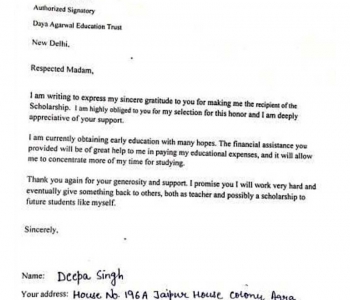 Authorized Signatory
Daya Agarwal Education Trust
New Delhi.
Respected Madam,
I am writing to express my sincere gratitude to you for making me the recipient of the
Scholarship. I am highly obliged to you for my selection for this honor and I am deeply
appreciative of your support.
I am currently obtaining early education with many hopes. The financial assistance you
provided will be of great help to me in paying my educational expenses, and it will allow
me to concentrate more of my time for studying.
Thank you again for your generosity and support. I promise you I will work very hard and
eventually give something back to others, both as teacher and possibly a scholarship to
future students like myself.
Sincerely,
Name: Deepa Singh
Your address: House No. 196A Jaipur House Colony Agra